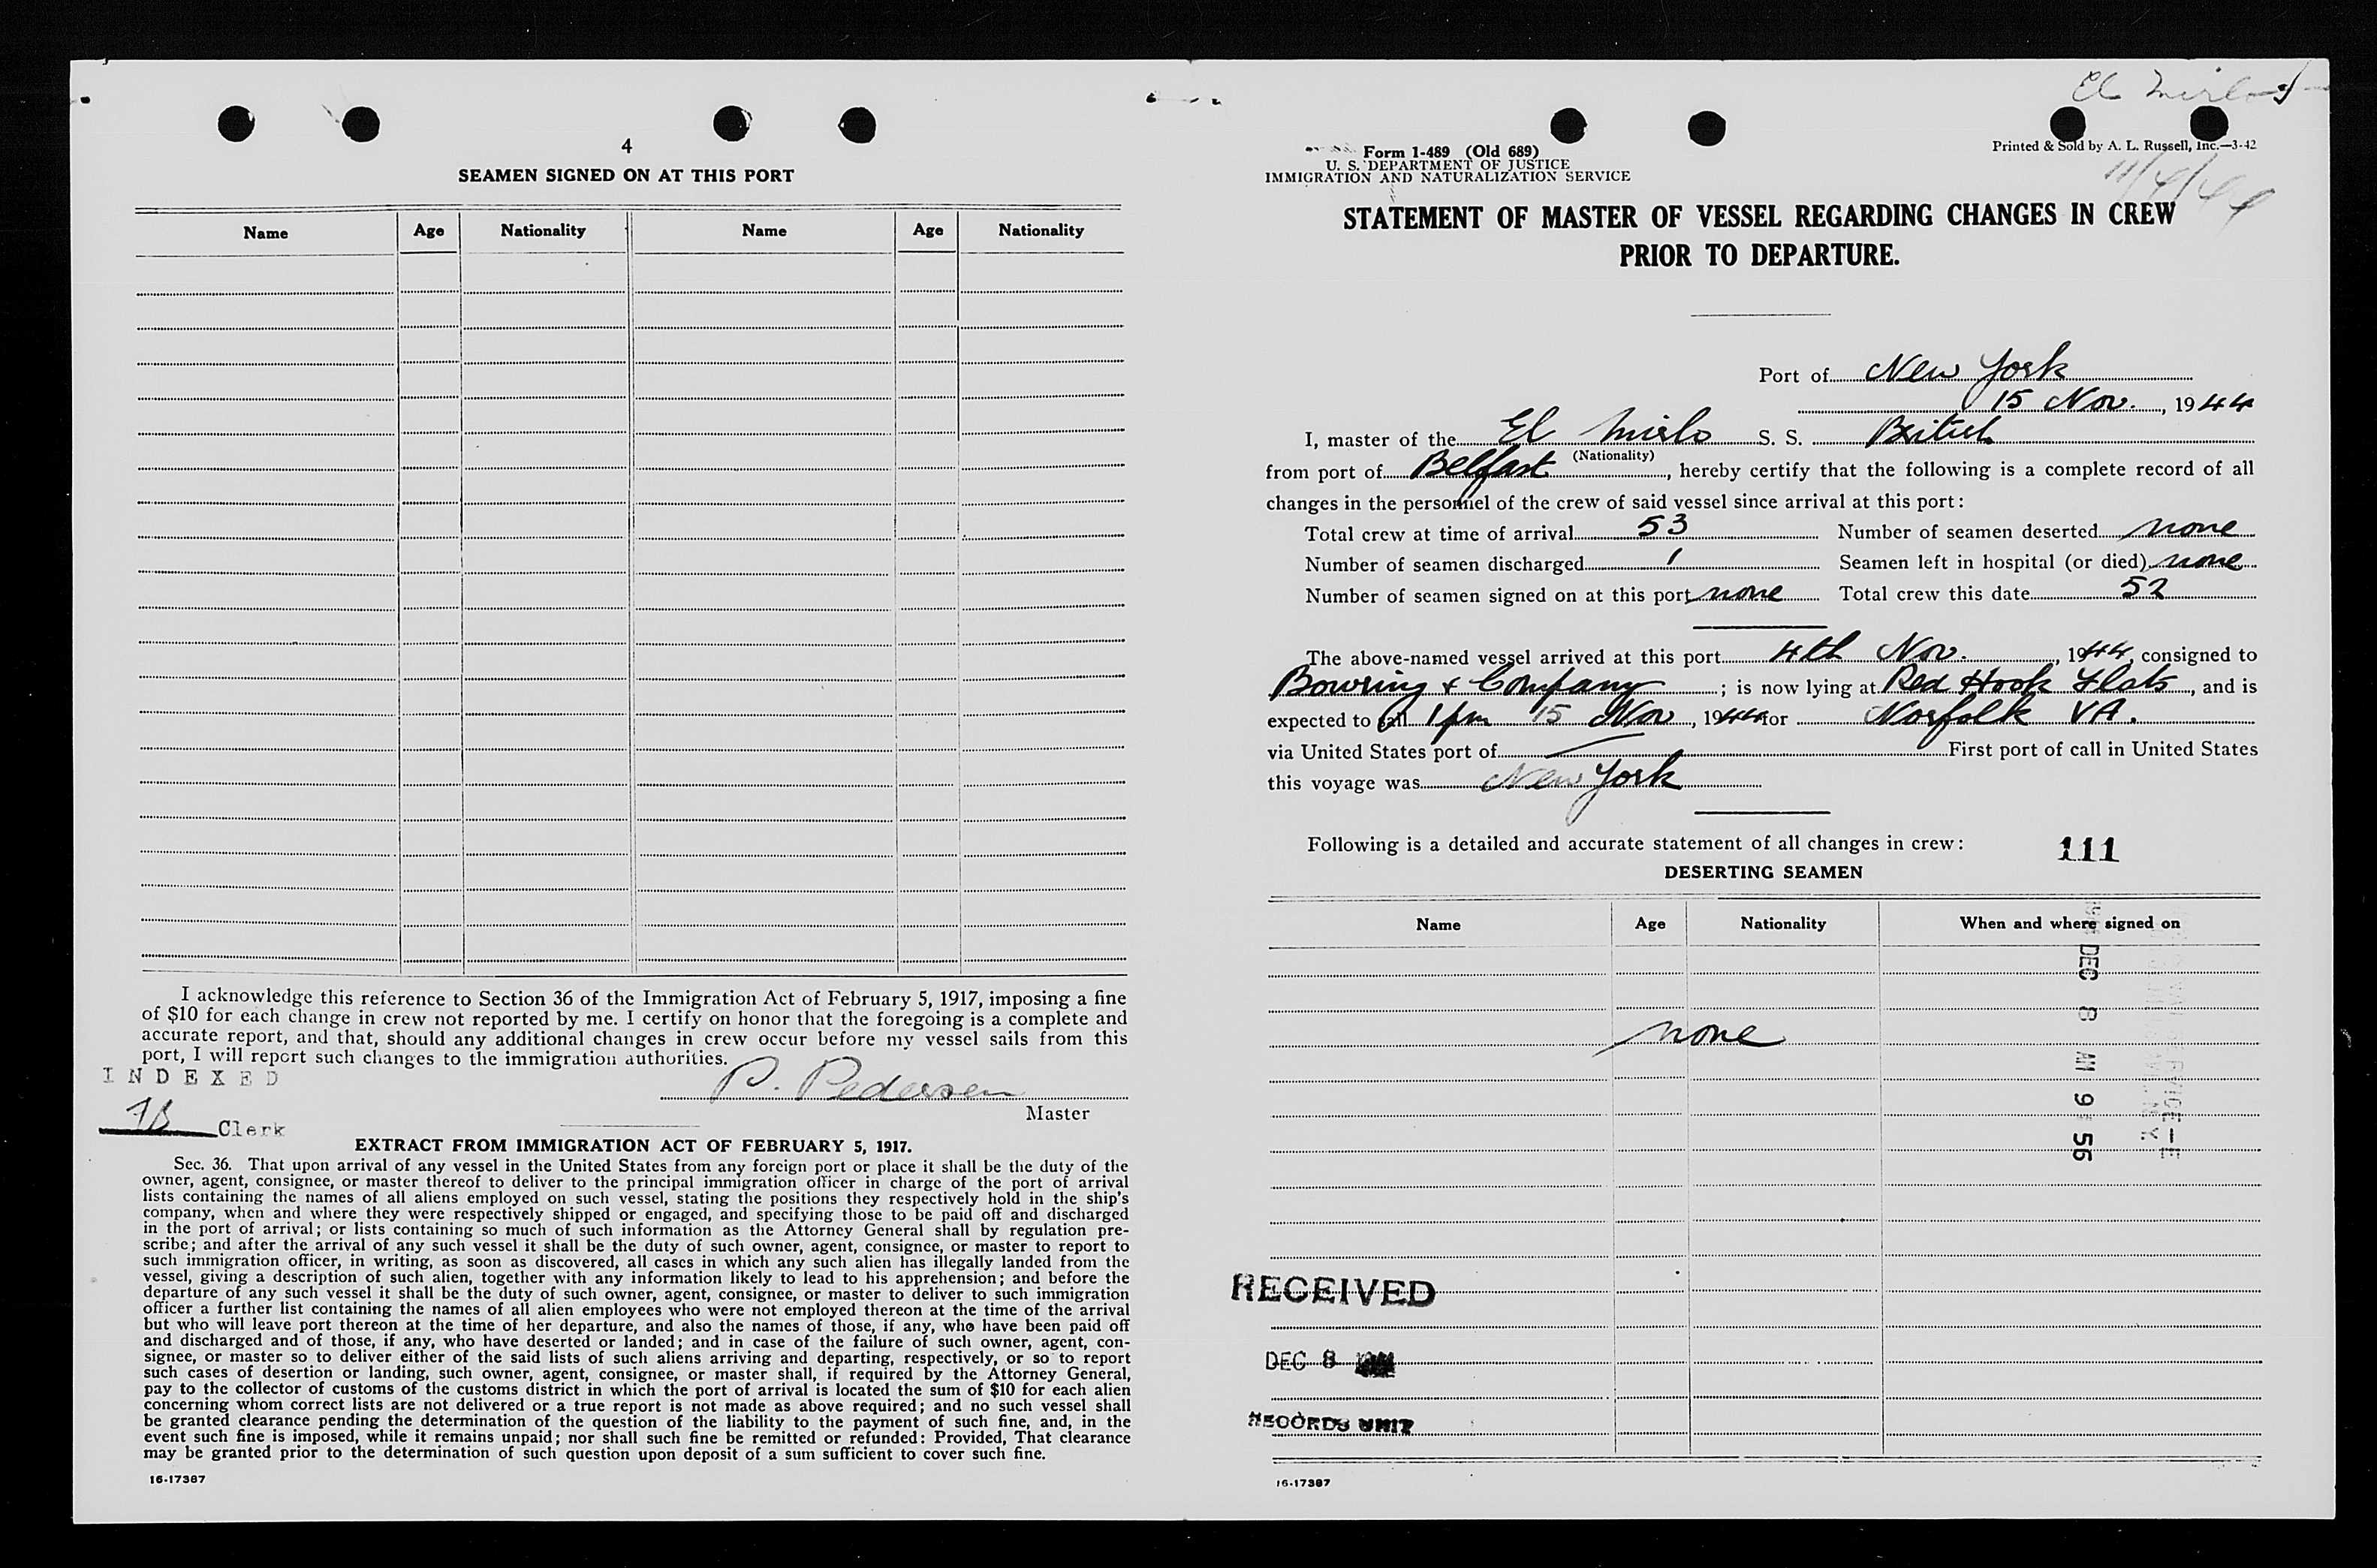 4
SEAMEN SIGNED ON AT THIS PORT
Name Age Nationality Name Age Nationality
I acknowledge this reference to Section 36 of the Immigration Act of February 5, 1917, imposing a fine
of $10 for each change in crew not reported by me. I certify on honor that the foregoing is a complete and
accurate report, and that, should any additional changes in crew occur before my vessel sails from this
port, I will report such changes to the immigration authorities.
INDEXED
P. Pedersen
Master
Clerk
EXTRACT FROM IMMIGRATION ACT OF FEBRUARY 5, 1917.
Sec. 36. That upon arrival of any vessel in the United States from any foreign port or place it shall be the duty of the
owner, agent, consignee, or master thereof to deliver to the principal immigration officer in charge of the port of arrival
lists containing the names of all aliens employed on such vessel, stating the positions they respectively hold in the ship's
company, when and where they were respectively shipped or engaged, and specifying those to be paid off and discharged
in the port of arrival; or lists containing so much of such information as the Attorney General shall by regulation pre-
scribe; and after the arrival of any such vessel it shall be the duty of such owner, agent, consignee, or master to report to
such immigration officer, in writing, as soon as discovered, all cases in which any such alien has illegally landed from the
vessel, giving a description of such alien, together with any information likely to lead to his apprehension; and before the
departure of any such vessel it shall be the duty of such owner, agent, consignee, or master to deliver to such immigration
officer a further list containing the names of all alien employees who were not employed thereon at the time of the arrival
but who will leave port thereon at the time of her departure, and also the names of those, if any, who have been paid off
and discharged and of those, if any, who have deserted or landed; and in case of the failure of such owner, agent, con-
signee, or master so to deliver either of the said lists of such aliens arriving and departing, respectively, or so to report
such cases of desertion or landing, such owner, agent, consignee, or master shall, if required by the Attorney General,
pay to the collector of customs of the customs district in which the port of arrival is located the sum of $10 for each alien
concerning whom correct lists are not delivered or a true report is not made as above required; and no such vessel shall
be granted clearance pending the determination of the question of the liability to the payment of such fine, and, in the
event such fine is imposed, while it remains unpaid; nor shall such fine be remitted or refunded: Provided, That clearance
may be granted prior to the determination of such question upon deposit of a sum sufficient to cover such fine.
16-17387
El Mirlo
Form 1-489 (Old 689)
U. S. DEPARTMENT OF JUSTICE
IMMIGRATION AND NATURALIZATION SERVICE
Printed & Sold by A. L. Russell, Inc.—3-42
11/4/44
STATEMENT OF MASTER OF VESSEL REGARDING CHANGES IN CREW
PRIOR TO DEPARTURE.
Port of New York
15 Nov. , 1944
I, master of the El Mirlo S. S. British
(Nationality)
from port of Belfast , hereby certify that the following is a complete record of all
changes in the personnel of the crew of said vessel since arrival at this port:
Total crew at time of arrival 53 Number of seamen deserted none
Number of seamen discharged 1 Seamen left in hospital (or died) none
Number of seamen signed on at this port none Total crew this date 52
The above-named vessel arrived at this port 4th Nov. , 1944, consigned to
Bowring & Company ; is now lying at Red Hook Flats , and is
expected to sail 1 pm 15 Nov , 1944 for Norfolk VA.
via United States port of First port of call in United States
this voyage was New York
Following is a detailed and accurate statement of all changes in crew: 111
DESERTING SEAMEN
Name Age Nationality When and where signed on
none
DEC 8 AM 9 55
RECEIVED
DEC 8
RECORDS UNIT
16-17387